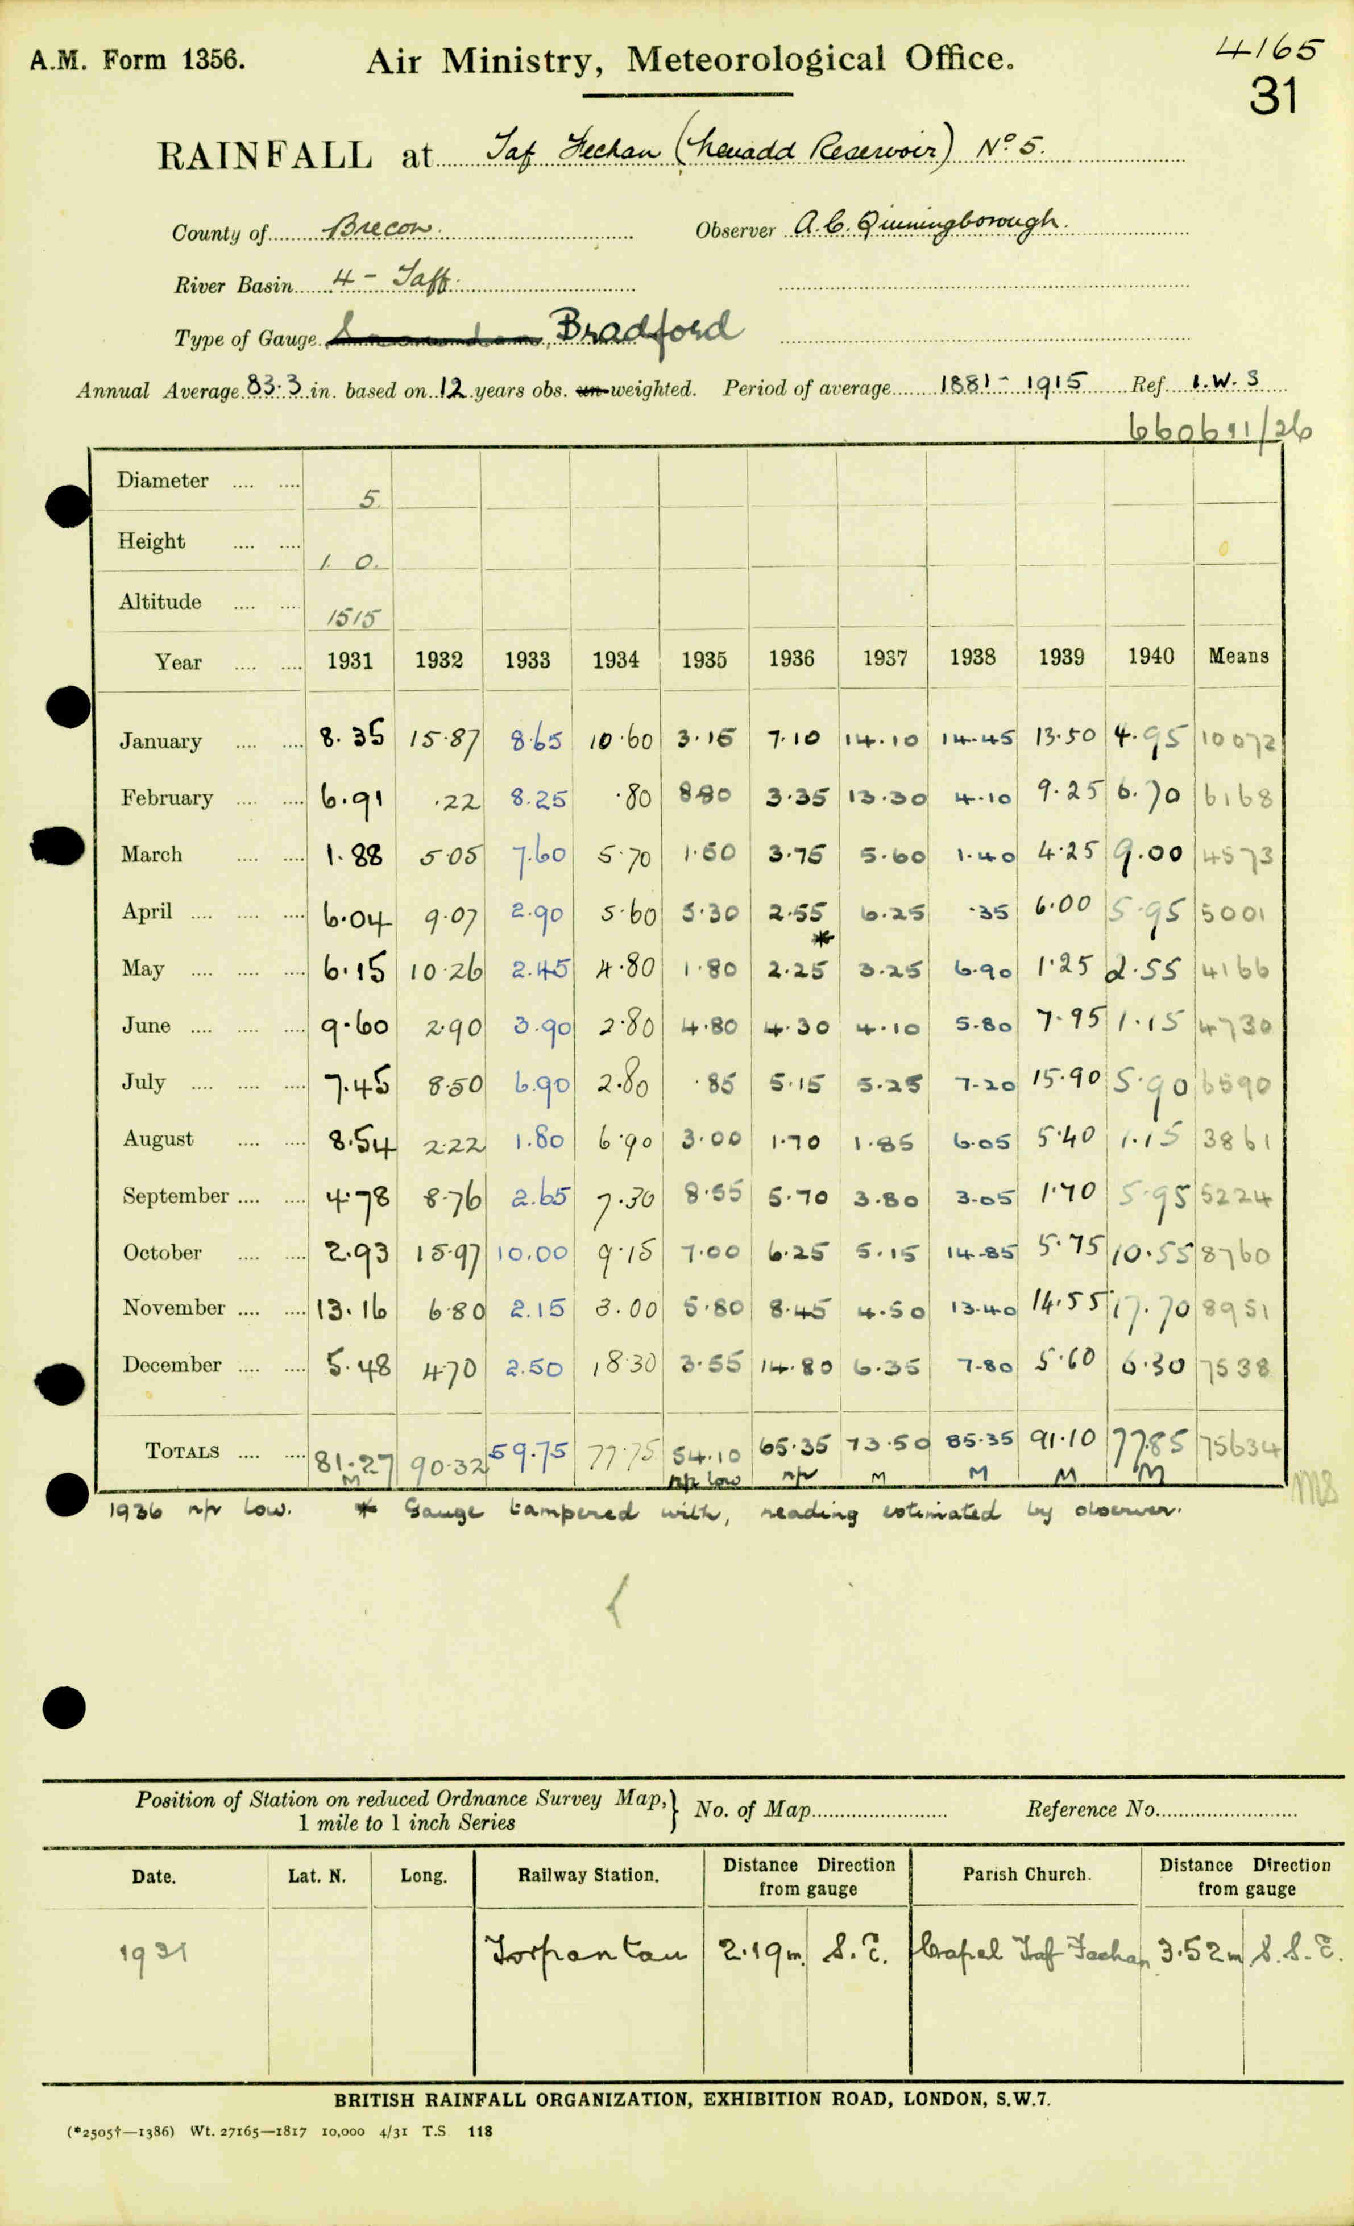 A.M. Form 1356.
Air Ministry, Meteorological Office.
4165
31
RAINFALL at Taf Fechan (Neuadd Reservoir) No 5.
County of Brecon. Observer A.C. Qinningborough.
River Basin 4 - Taff.
Type of Gauge Bradford
Annual Average 83.3 in. based on 12 years obs. un-weighted. Period of average 1881 - 1915 Ref. I.W.S
660611/26
Diameter 5.
Height 1. 0.
Altitude 1515
Year 1931 1932 1933 1934 1935 1936 1937 1938 1939 1940 Means
January 8.35 15.87 8.65 10.60 3.15 7.10 14.10 14.45 13.50 4.95 10072
February 6.91 .22 8.25 .80 8.80 3.35 13.30 4.10 9.25 6.70 6168
March 1.88 5.05 7.60 5.70 1.50 3.75 5.60 1.40 4.25 9.00 4573
April 6.04 9.07 2.90 5.60 5.30 2.55 6.25 .35 6.00 5.95 5001
*
May 6.15 10.26 2.45 4.80 1.80 2.25 3.25 6.90 1.25 2.55 4166
June 9.60 2.90 3.90 2.80 4.80 4.30 4.10 5.80 7.95 1.15 4730
July 7.45 8.50 6.90 2.80 .85 5.15 5.25 7.20 15.90 5.90 6590
August 8.54 2.22 1.80 6.90 3.00 1.70 1.85 6.05 5.40 1.15 3861
September 4.78 8.76 2.65 7.30 8.55 5.70 3.80 3.05 1.70 5.95 5224
October 2.93 15.97 10.00 9.15 7.00 6.25 5.15 14.85 5.75 10.55 8760
November 13.16 6.80 2.15 3.00 5.80 8.45 4.50 13.40 14.55 17.70 8951
December 5.48 4.70 2.50 18.30 3.55 14.80 6.35 7.80 5.60 6.30 7538
TOTALS 81.27 90.32 59.75 77.75 54.10 65.35 73.50 85.35 91.10 77.85 75634
M np low np M M M M M8
1936 np low. * Gauge tampered with, reading estimated by observer.
Position of Station on reduced Ordnance Survey Map,
1 mile to 1 inch Series } No. of Map Reference No.
Date. Lat. N. Long. Railway Station. Distance Direction from gauge Parish Church. Distance Direction from gauge
1931 Torpantau 2.19m. S.E. Capel Taf Fechan 3.52m S.S.E.
BRITISH RAINFALL ORGANIZATION, EXHIBITION ROAD, LONDON, S.W.7.
(*2505†—1386) Wt. 27165—1817 10,000 4/31 T.S 118